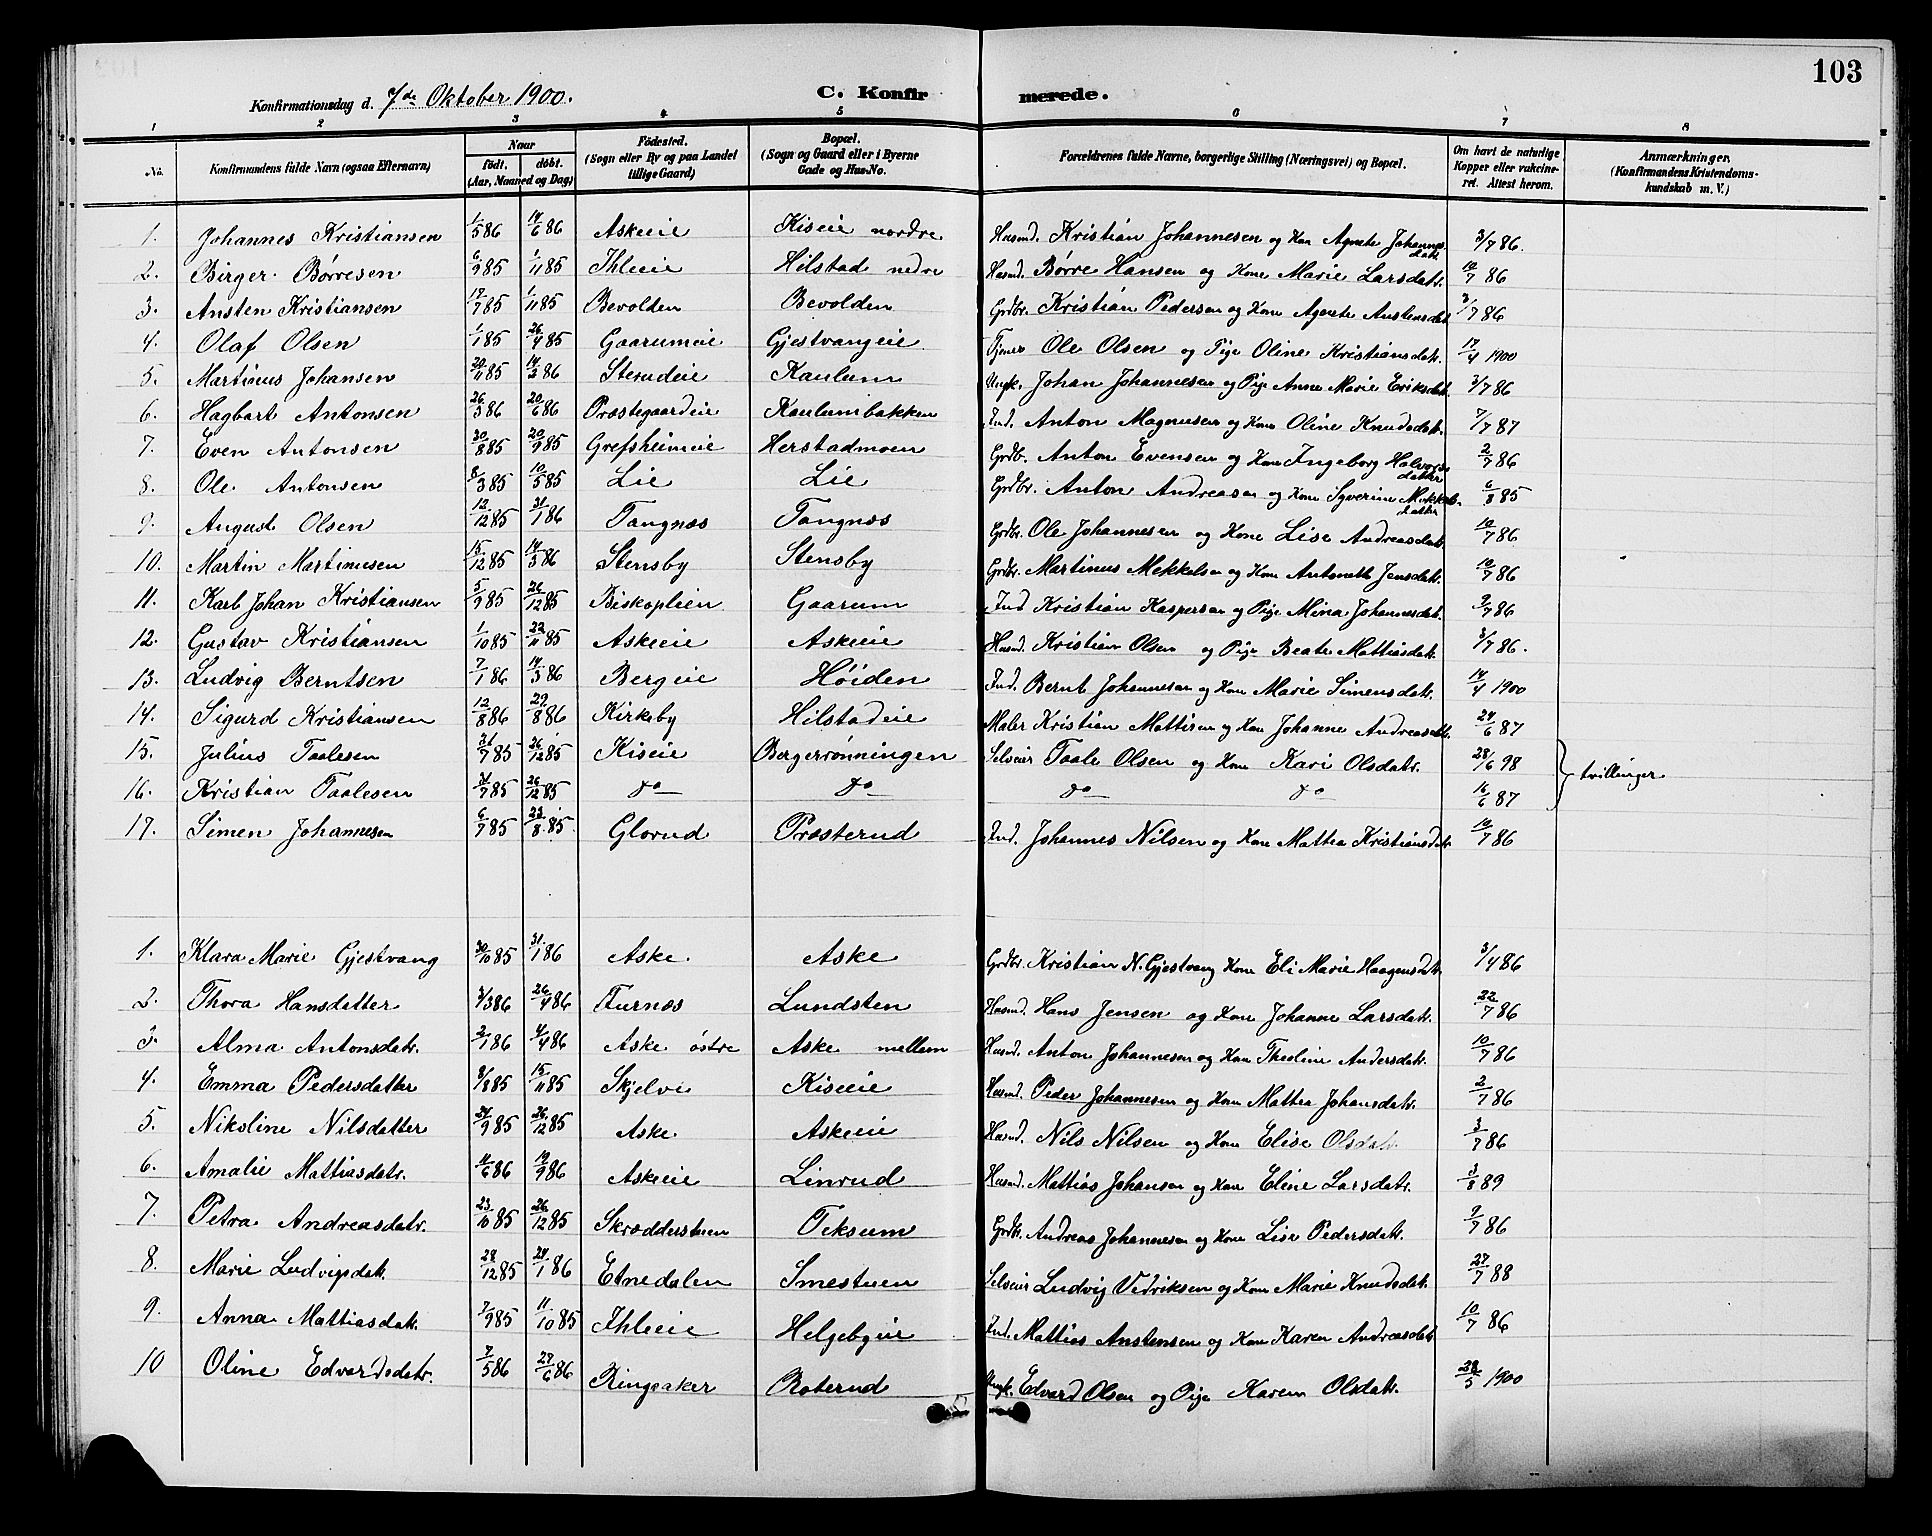 103
Konfirmationsdag d. 7de Oktober 1900. C. Konfirmerede.
1 2 3 4 5 6 7 8
No. Konfirmandens fulde Navn (ogsaa Efternavn) Naar født. døbt. (Aar, Maaned og Dag) Födested. (Sogn eller By og paa Landet tillige Gaard) Bopæl. (Sogn og Gaard eller i Byerne Gade og Hus-No. Forældrenes fulde Navne, borgerlige Stilling (Næringsvei) og Bopæl. Om havt de naturlige Kopper eller vakcineret. Attest herom. Anmærkninger. (Konfirmandens Kristendomskundskab m. V.)
1. Johannes Kristiansen 1/5 86 14/6 86 Askeeie Kiseie nordre Husmd. Kristian Johannesen og Kone Agnete Johannesdatr. 3/7 86.
2. Birger Børresen 6/9 85 1/11 85 Ihleeie Hilstad nedre Husmd. Børre Hansen og Kone Marie Larsdatr. 10/7 86
3. Ansten Kristiansen 17/7 85 1/11 85 Bevolden Bevolden Grdbr. Kristian Pedersen og Kone Agnete Anstensdat. 3/7 86
4. Olaf Olsen 1/1 85 26/4 85 Gaarumeie Gjestvangeie Tjener Ole Olsen og Pige Oline Kristiansdatr. 17/4 1900
5. Martinus Johansen 20/11 85 14/2 86 Sterudeie Kaulum Ungk. Johan Johannesen og Pige Anne Marie Eriksdatr. 3/7 86
6. Hagbart Antonsen 26/3 86 20/6 86 Præstegaardeie Kaulumbakken Ind. Anton Magnusen og Kone Oline Knudsdatr. 7/7 87
7. Even Antonsen 30/8 85 20/9 85 Grefsheimeie Herstadmoen Grdb. Anton Evensen og Kone Ingeborg Halvorsdatter 2/7 86
8. Ole Antonsen 8/3 85 10/5 85 Lie Lie Grdbr. Anton Andreasen og Kone Syverine Mekkelsdatter 6/8 85
9. August Olsen 12/12 85 31/1 86 Tangnæs Tangnæs Grdbr. Ole Johannesen og Kone Lise Andreasdatr. 10/7 86
10. Martin Martinusen 15/12 85 14/3 86 Stensby Stensby Grdbr. Martinus Mekkelsen og Kone Antonette Jensdatr. 10/7 86
11. Karl Johan Kristiansen 5/9 85 26/12 85 Biskoplien Gaarum Ind Kristian Kaspersen og Pige Mina Johannesdatr. 9/7 86
12. Gustav Kristiansen 1/10 85 22/11 85 Askeeie Askeeie Husmd. Kristian Olsen og Pige Beate Mattiasdatr. 3/7 86.
13. Ludvig Berntsen 7/1 86 14/3 86 Bergeie Høiden Ind. Bernt Johannesen og Kone Marie Simensdatr. 14/4 1900
14. Sigurd Kristiansen 12/8 86 29/8 86 Kirkeby Hilstadeie Maler Kristian Mattisen og Kone Johanne Andreasdatr. 24/6 87
15. Julius Taalesen 21/7 85 26/12 85 Kiseie Bergerrønningen Selveier Taale Olsen og Kone Kari Olsdatr. 28/6 98 } tvillinger
16. Kristian Taalesen 21/7 85 26/12 85 do do do do 16/6 87
17. Simen Johannesen 6/7 85 23/8 85. Glorud Præsterud Ind. Johannes Nilsen og Kone Mattea Kristiansdatr. 10/7 86
1. Klara Marie Gjestvang 30/10 85 31/1 86 Aske. Aske Grdbr. Kristian N. Gjestvang Kone Eli Marie Haagensdatr. 3/4 86
2. Thora Hansdatter 3/3 86 26/4 86 Furnæs Lundsten Husmd. Hans Jensen og Kone Johanne Larsdatr. 22/7 86
3. Alma Antonsdatr. 2/1 86 4/4 86 Aske østre Aske mellem Husmd. Anton Johannesen og Kone Theoline Andersdatr. 10/7 86
4. Emma Pedersdatter 8/8 85 15/11 85 Skjelve Kiseeie Husmd. Peder Johannesen og Kone Mattea Johansdatr. 2/7 86
5. Nikoline Nilsdatter 24/9 85 26/12 85 Aske. Askeeie Husmd. Nils Nilsen og Kone Elise Olsdatr. 3/7 86
6. Amalie Mattiasdatr. 11/6 86 19/9 86 Askeeie Linrud Husmd. Mattias Johansen og Kone Eline Larsdatr. 3/8 89
7. Petra Andreasdatr. 23/10 85 26/12 85 Skræddersteen Teksum Grdbr. Andreas Johannesen og Kone Lise Pedersdatr. 9/7 86
8. Marie Ludvigsdatr. 28/12 85 24/1 86 Etnedalen Smestuen Selveier Ludvig Vedriksen og Kone Marie Knudsdatr. 27/7 88
9. Anna Mattiasdatr. 7/9 85 11/10 85 Ihleeie Helgebyeie Ind. Mattias Anstensen og Kone Karen Andreasdatr. 10/7 86
10 Oline Edvardsdatr. 7/5 86 27/6 86 Ringsaker Roterud Ungk. Edvard Olsen og Pige Karen Olsdatr. 28/5 1900